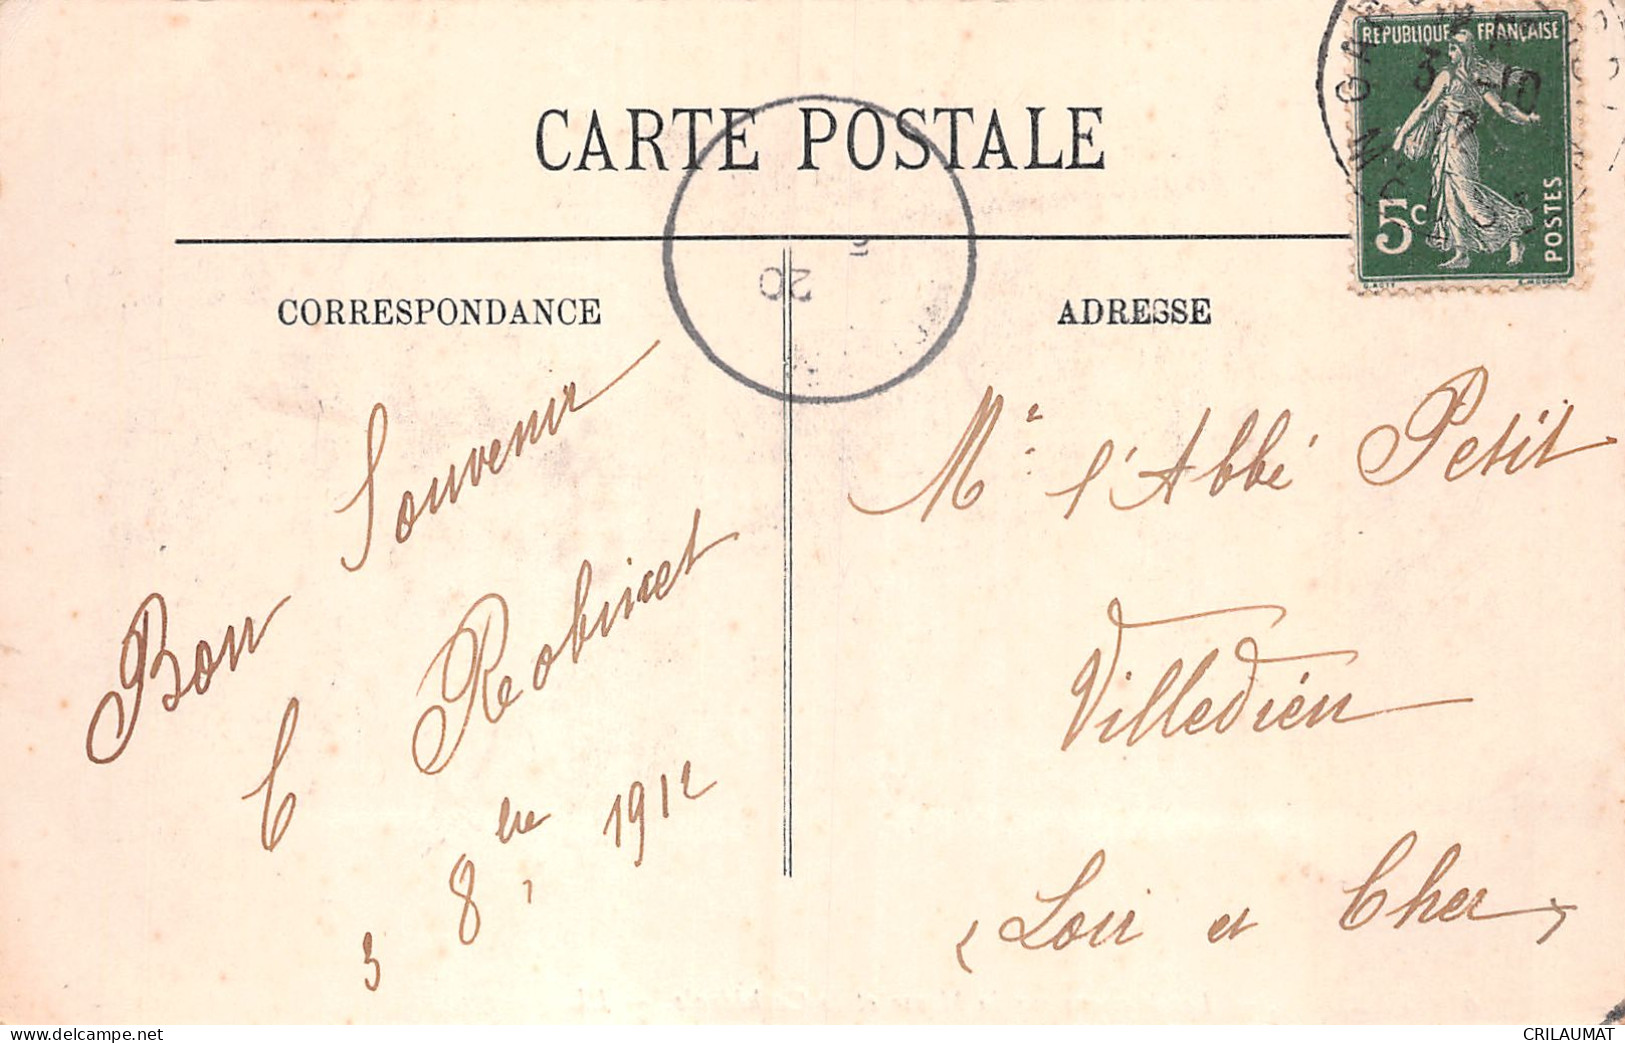 CARTE POSTALE
CORRESPONDANCE
Bon Souvenir
C Robinet
3 8bre 1912
ADRESSE
Mr l'Abbé Petit
Villedieu
(Loir et Cher)
REPUBLIQUE FRANÇAISE
5c
POSTES
3 -10
20
CRILAUMAT